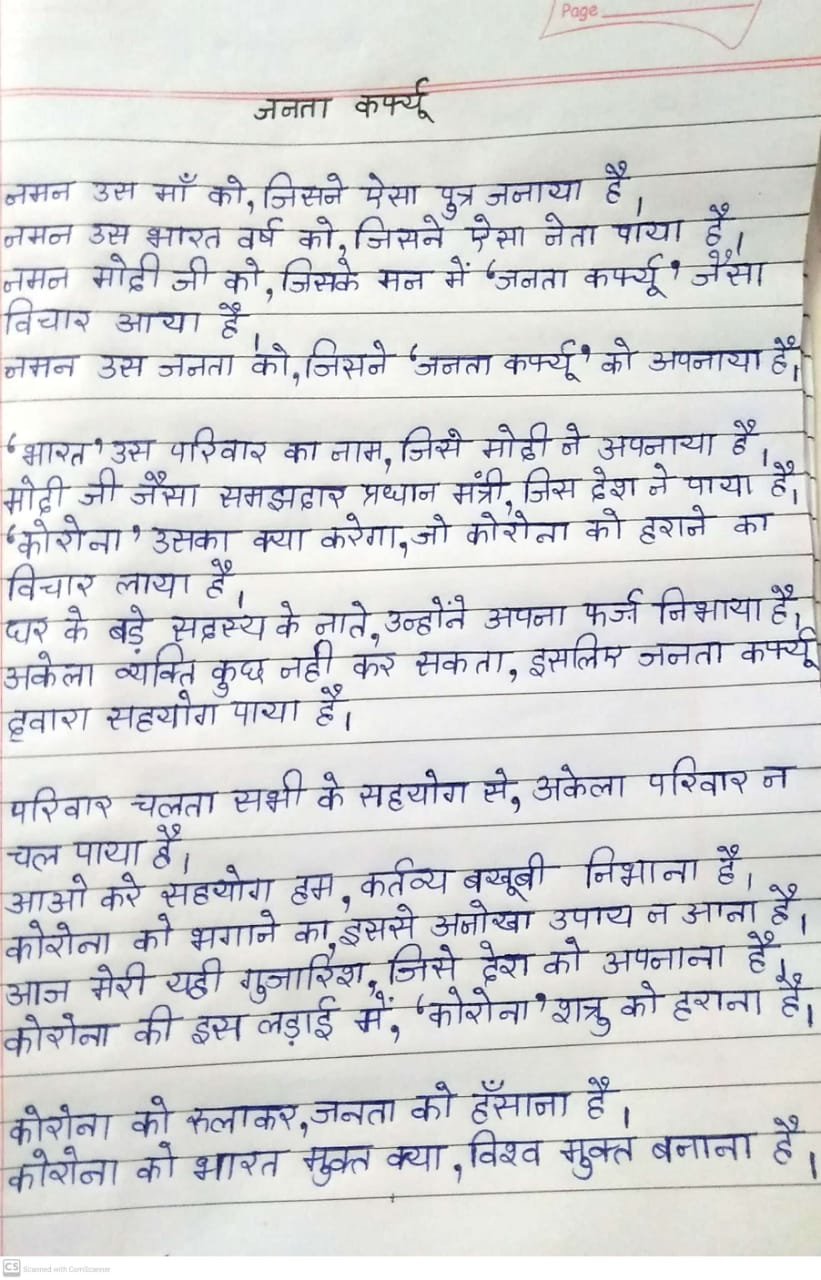 Page
जनता कर्फ्यू
नमन उस माँ को, जिसने ऐसा पुत्र जनाया है।
नमन उस भारत वर्ष को, जिसने ऐसा नेता पाया है।
नमन मोदी जी को, जिसके मन में 'जनता कर्फ्यू' जैसा
विचार आया है।
नमन उस जनता को, जिसने 'जनता कर्फ्यू' को अपनाया है।
'भारत' उस परिवार का नाम, जिसे मोदी ने अपनाया है।
मोदी जी जैसा समझदार प्रधान मंत्री, जिस देश ने पाया है।
'कोरोना' उसका क्या करेगा, जो कोरोना को हराने का
विचार लाया है।
घर के बड़े सदस्य के नाते, उन्होंने अपना फर्ज़ निभाया है।
अकेला व्यक्ति कुछ नही कर सकता, इसलिए जनता कर्फ्यू
द्वारा सहयोग पाया है।
परिवार चलता सभी के सहयोग से, अकेला परिवार न
चल पाया है।
आओ करे सहयोग हम, कर्तव्य बखूबी निभाना है।
कोरोना को भगाने का, इससे अनोखा उपाय न आना है।
आज मेरी यही गुजारिश, जिसे देश को अपनाना है।
कोरोना की इस लड़ाई में, 'कोरोना' शत्रु को हराना है।
कोरोना को रुलाकर, जनता को हँसाना है।
कोरोना को भारत मुक्त क्या, विश्व मुक्त बनाना है।
CS Scanned with CamScanner